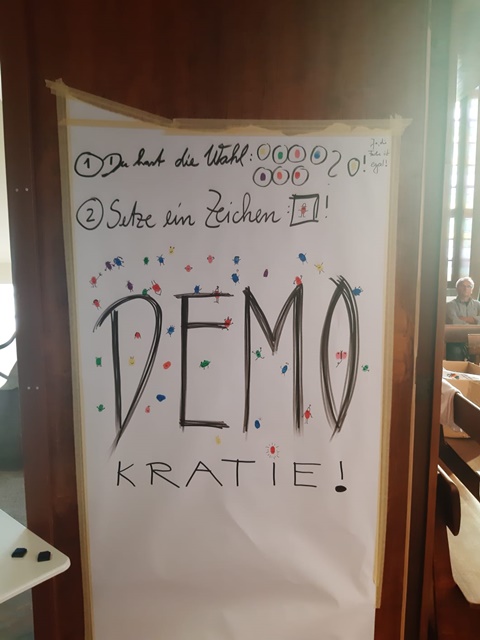 ① Du hast die Wahl: ? !
Ja, die
Farbe ist
egal!
② Setze ein Zeichen: !
DEMO
KRATIE!